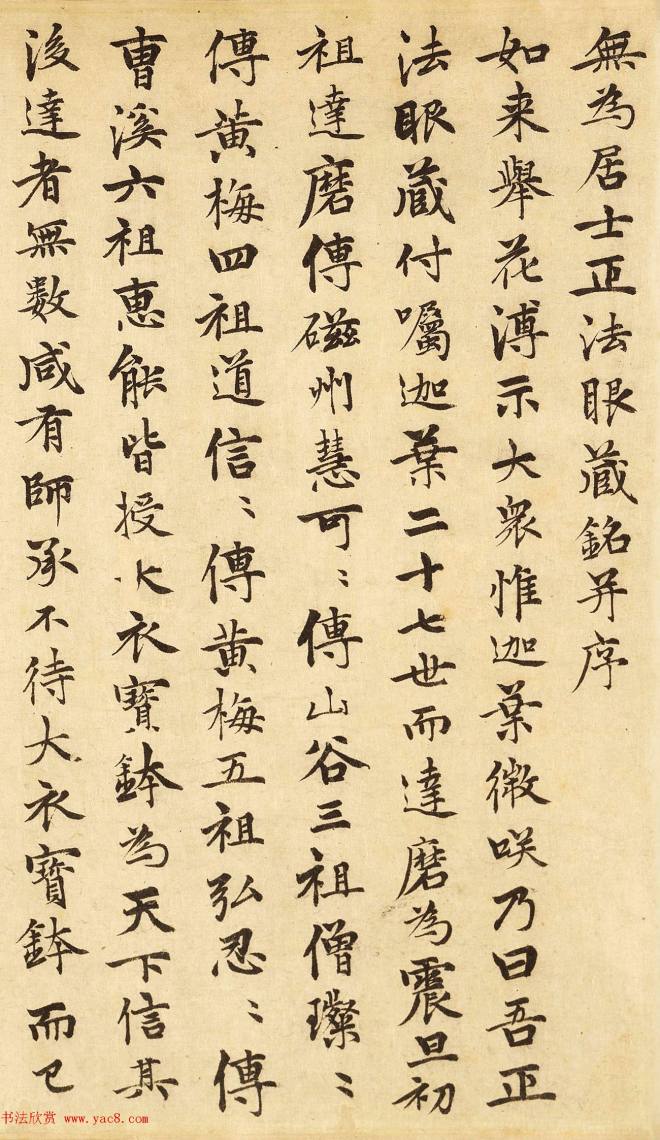 無為居士正法眼蔵銘并序
如来舉花溥示大衆惟迦葉微咲乃曰吾正
法眼蔵付囑迦葉二十七世而達磨為震旦初
祖達磨傳磁州慧可〻傳山谷三祖僧璨〻
傳黄梅四祖道信〻傳黄梅五祖弘忍〻傳
曹溪六祖惠能皆授大衣寶鉢為天下信其
後達者無数咸有師承不待大衣寶鉢而已
书法欣赏 www.yac8.com